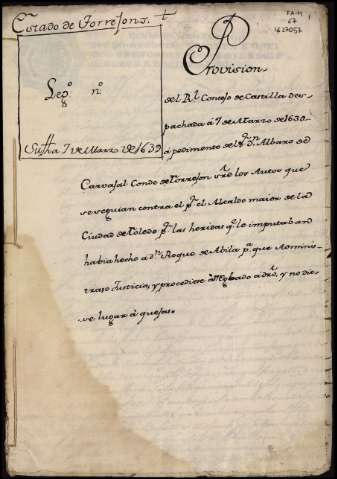 Estado de Torrejon.
Leg.º n.º
Su fha 7 de Marzo de 1639
FA-M
67
1637057
Provision
del Rl. Consejo de Castilla des
pachada á 7 de Marzo de 1639.
á pedimento del Sr. Dn. Albaro de
Carvajal Conde de Torrejon sre. los Autos que
se seguian contra el pr. el Alcalde maior de la
Ciudad de Toledo pr. las heridas qe. le imputaban
habia hecho á Dn. Roque de Abila pa. que Adminis
trase Justicia, y procediese arreglado á dro. y no die
se lugar á quejas.